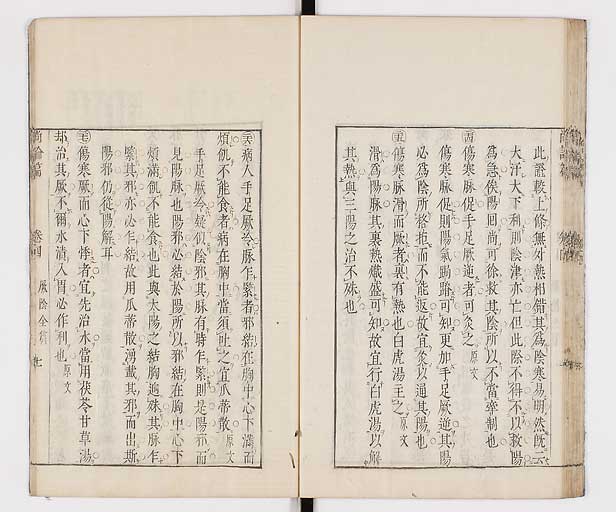 此證較上條無外熱相錯其爲陰寒易明然旣云
大汗大下利則陰津亦亡但此際不得不以救陽
爲急俟陽回尚可徐救其陰所以不當牽制也
傷寒脉促手足厥逆者可灸之原文
傷寒脉促則陽氣跼蹐可知更加手足厥逆其陽
必爲陰所格拒而不能返故宜灸以通其陽也
傷寒脉滑而厥者裏有熱也白虎湯主之原文
滑爲陽脉其裏熱熾盛可知故宜行白虎湯以解
其熱與三陽之治不殊也
病人手足厥冷脉乍緊者邪結在胸中心下滿而
煩飢不能食者病在胸中當須吐之宜瓜蒂散原文
手足厥冷疑似陰邪其脉有時乍緊則是陽邪而
見陽脉也陽邪必結於陽所以邪結在胸中心下
煩滿飢不能食也此與太陽之結胸逈殊其脉乍
緊其邪亦必乍結故用瓜蒂散湧載其邪而出斯
陽邪仍從陽解耳
傷寒厥而心下悸者宜先治水當用茯苓甘草湯
却治其厥不爾水漬入胃必作利也原文
尚論篇 卷四 厥陰全篇